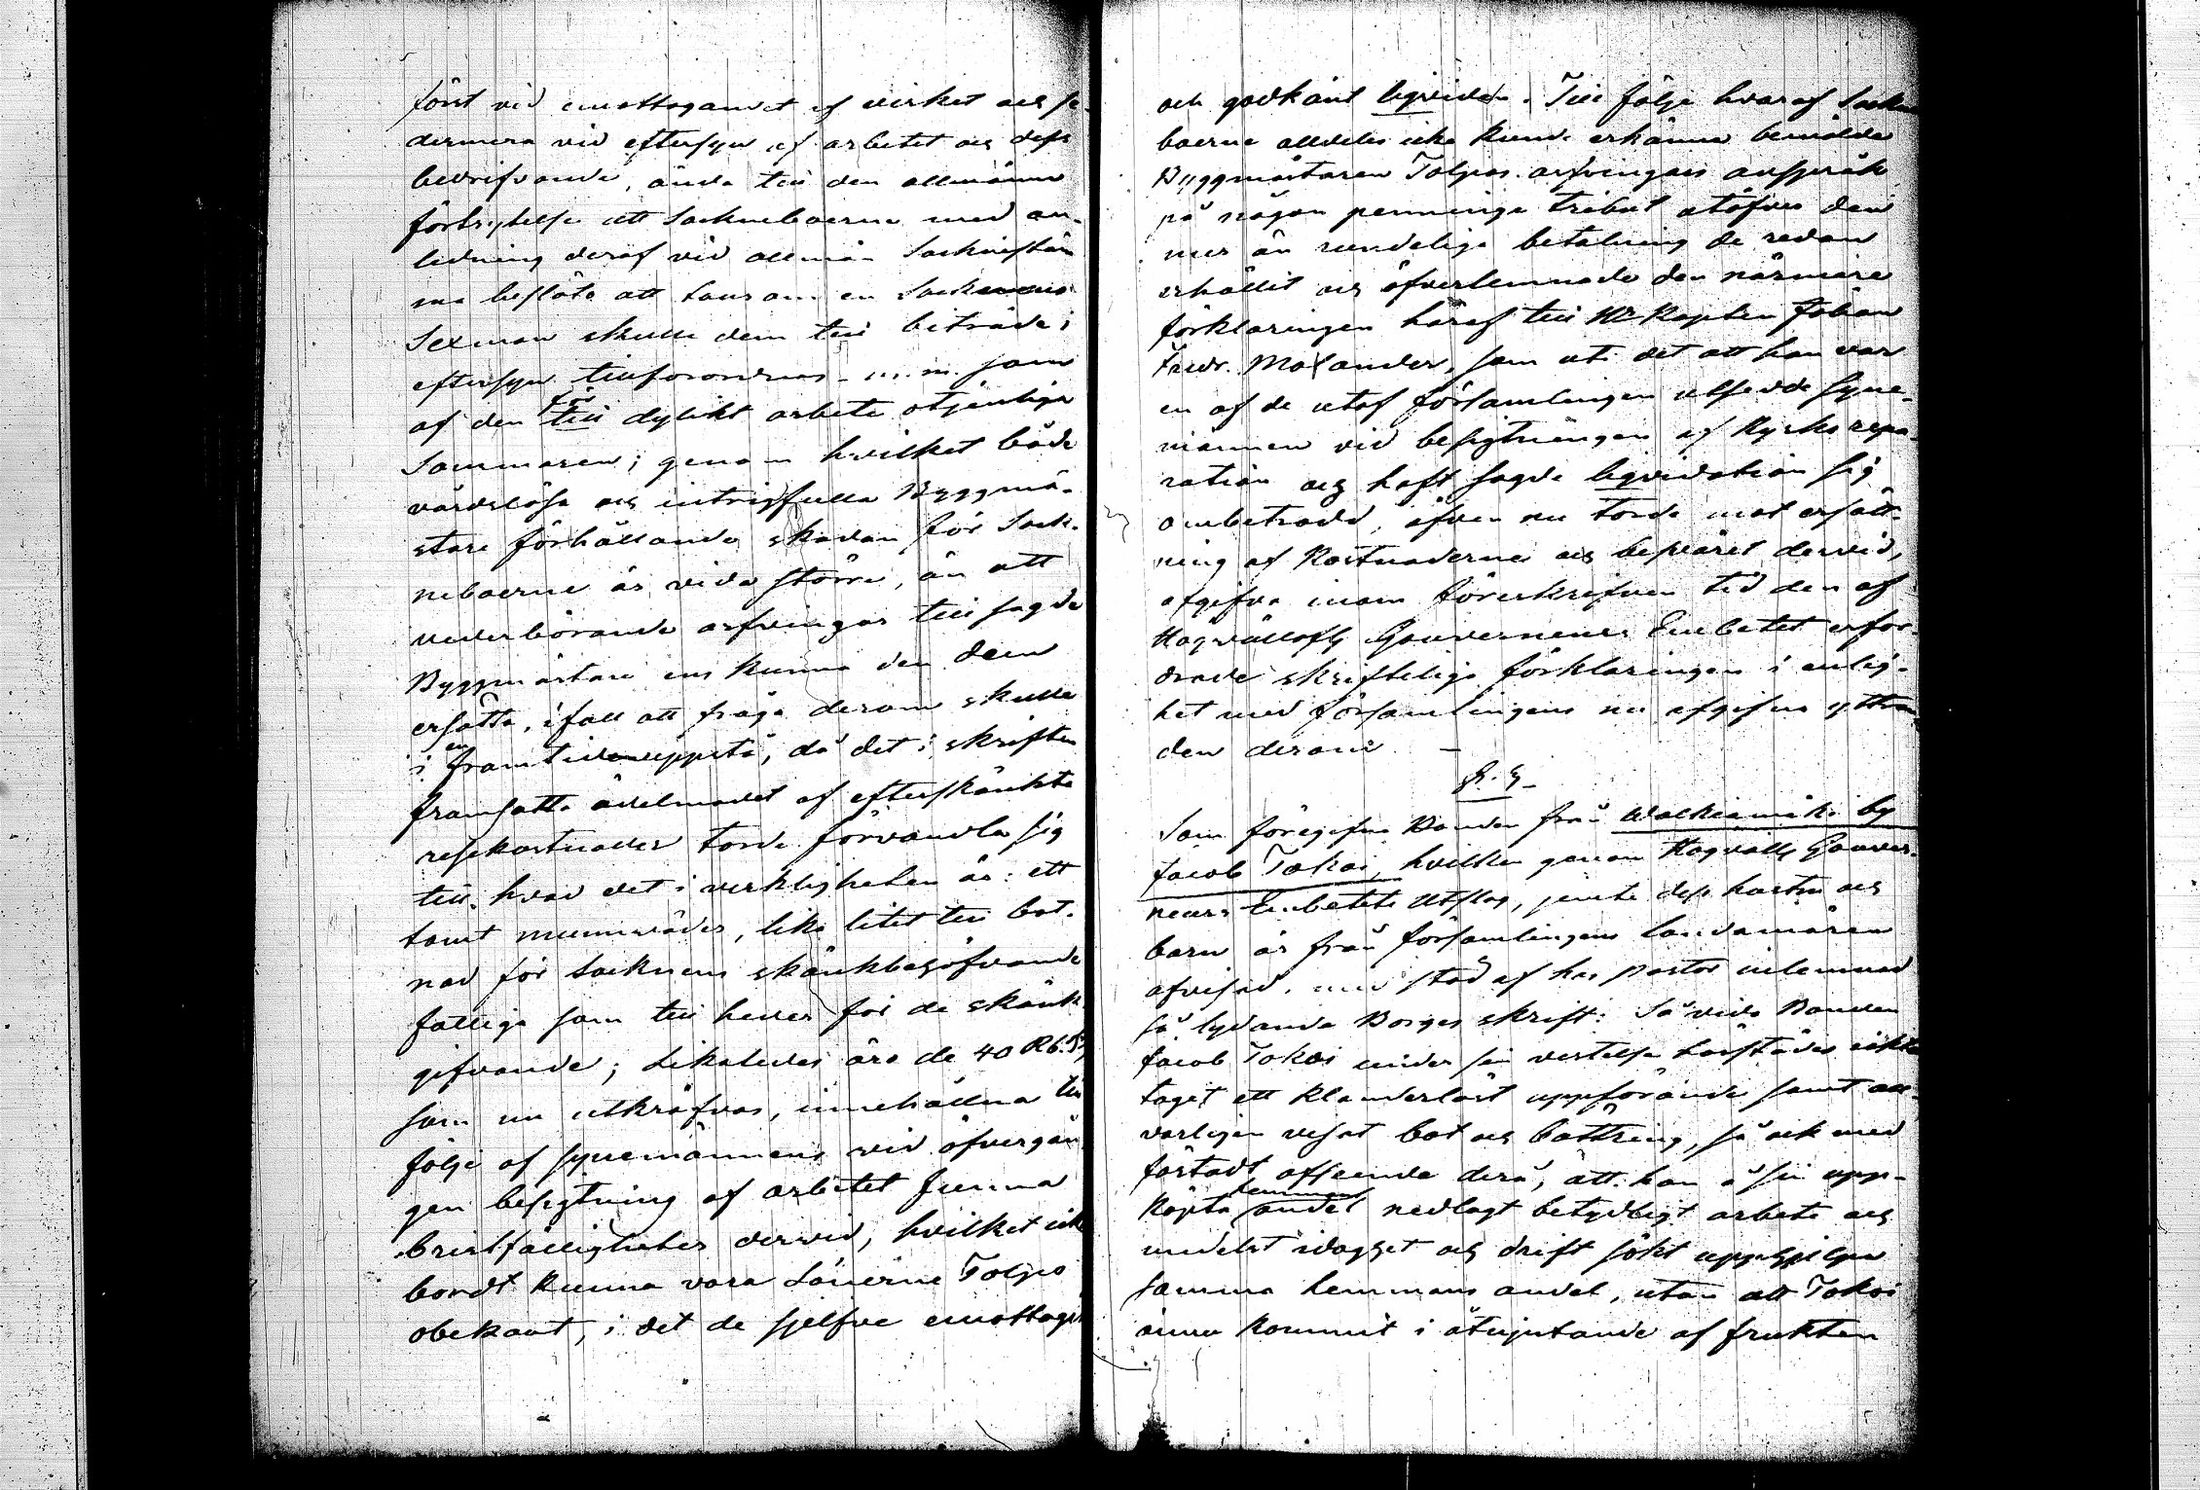 först vid emottagandet af virket och se-
dermera vid eftersyn af arbetet och dess
bedrifvande, ända till den allmänna
förbrytelse att Socknboerne med an-
ledning deraf vid allmän Socknestäm
ma beslöto att Länsman en Socknens
Sexman skulle dem till biträde i
eftersyn tillförordnas m. m. som
af den för till dylikt arbete otjenliga
Sommaren; genom hvilket både
vårdslösa och intrigfulla Byggmä-
stare förhållande skadan för Sock-
neboerne är vida större, än att
vederbörande arfvingar till sagde
Byggmästare ens kunna den dem
ersätta, ifall att fråga derom skulle
i en framtid uppstå, då det i skriften
framsatte ädelmodet af efterskänkte
resekostnader torde förvandla sig
till hvad det i verkligheten är: ett
tomt munväder, lika litet till båt-
nad för Socknens skänkbehöfvande
fattiga som till heder för de skänk
gifvande; Likaledes äro de 40 Rb. S
som nu utkräfvas, innehållna till
följe af synemännens vid öfvergån
gen besigtning af arbetet funna
bristfälligheter dervid, hvilket icke
bordt kunna vara Sönerne Tolpo
obekant, i det de sjelfve emottagit
och godkänt liqviden. Till följe hvaraf Sockne
boerne alldeles icke kunde erkänna bemälde
Byggmästaren Tolpos arfvingars anspråk
på någon penninge tribut utöfver den
mer än rundeliga betalning de redan
erhållit och öfverlemnade den närmare
förklaringen häraf till Hr Kapten Johan
Fredr. Molander, som uti det att han var
en af de utaf församlingen utsedde syne-
männen vid besigtningen af Kyrko repa-
ration och haft sagde liqvidation sig
ombetrodd, äfven nu torde mot ersätt-
ning af Kostnaderne och besväret dervid,
afgifva inom föreskrifven tid den af
Högvällofl Gouverneurs Embetet erfor-
drade skriftelige förklaringen i enlig-
het med församlingens nu afgifna yttran
den derom. —
§. 3.
Som föregifna Bonden från Walkiamäki by
Jacob Tokoi, hvilken genom Högvällofl Gouver-
neurs Embetets Utslag, jemte dess hustru och
barn är från församlingens landamären
afvisad, med stöd af hos Pastor inlemnad
så lydande Borges skrift: Så vida Bonden
Jacob Tokoi under sin vistelse härstädes iakt
taget ett klanderlöst uppförande samt all-
varligen visat bot och bättring, så ock med
fästadt afseende derå, att han å sin upp-
köpta hemmans andel nedlagt betydligt arbete och
medelst idoghet och drift sökt upphjelpa
samma hemmans andel, utan att Tokoi
ännu kommit i åtnjutande af frukten